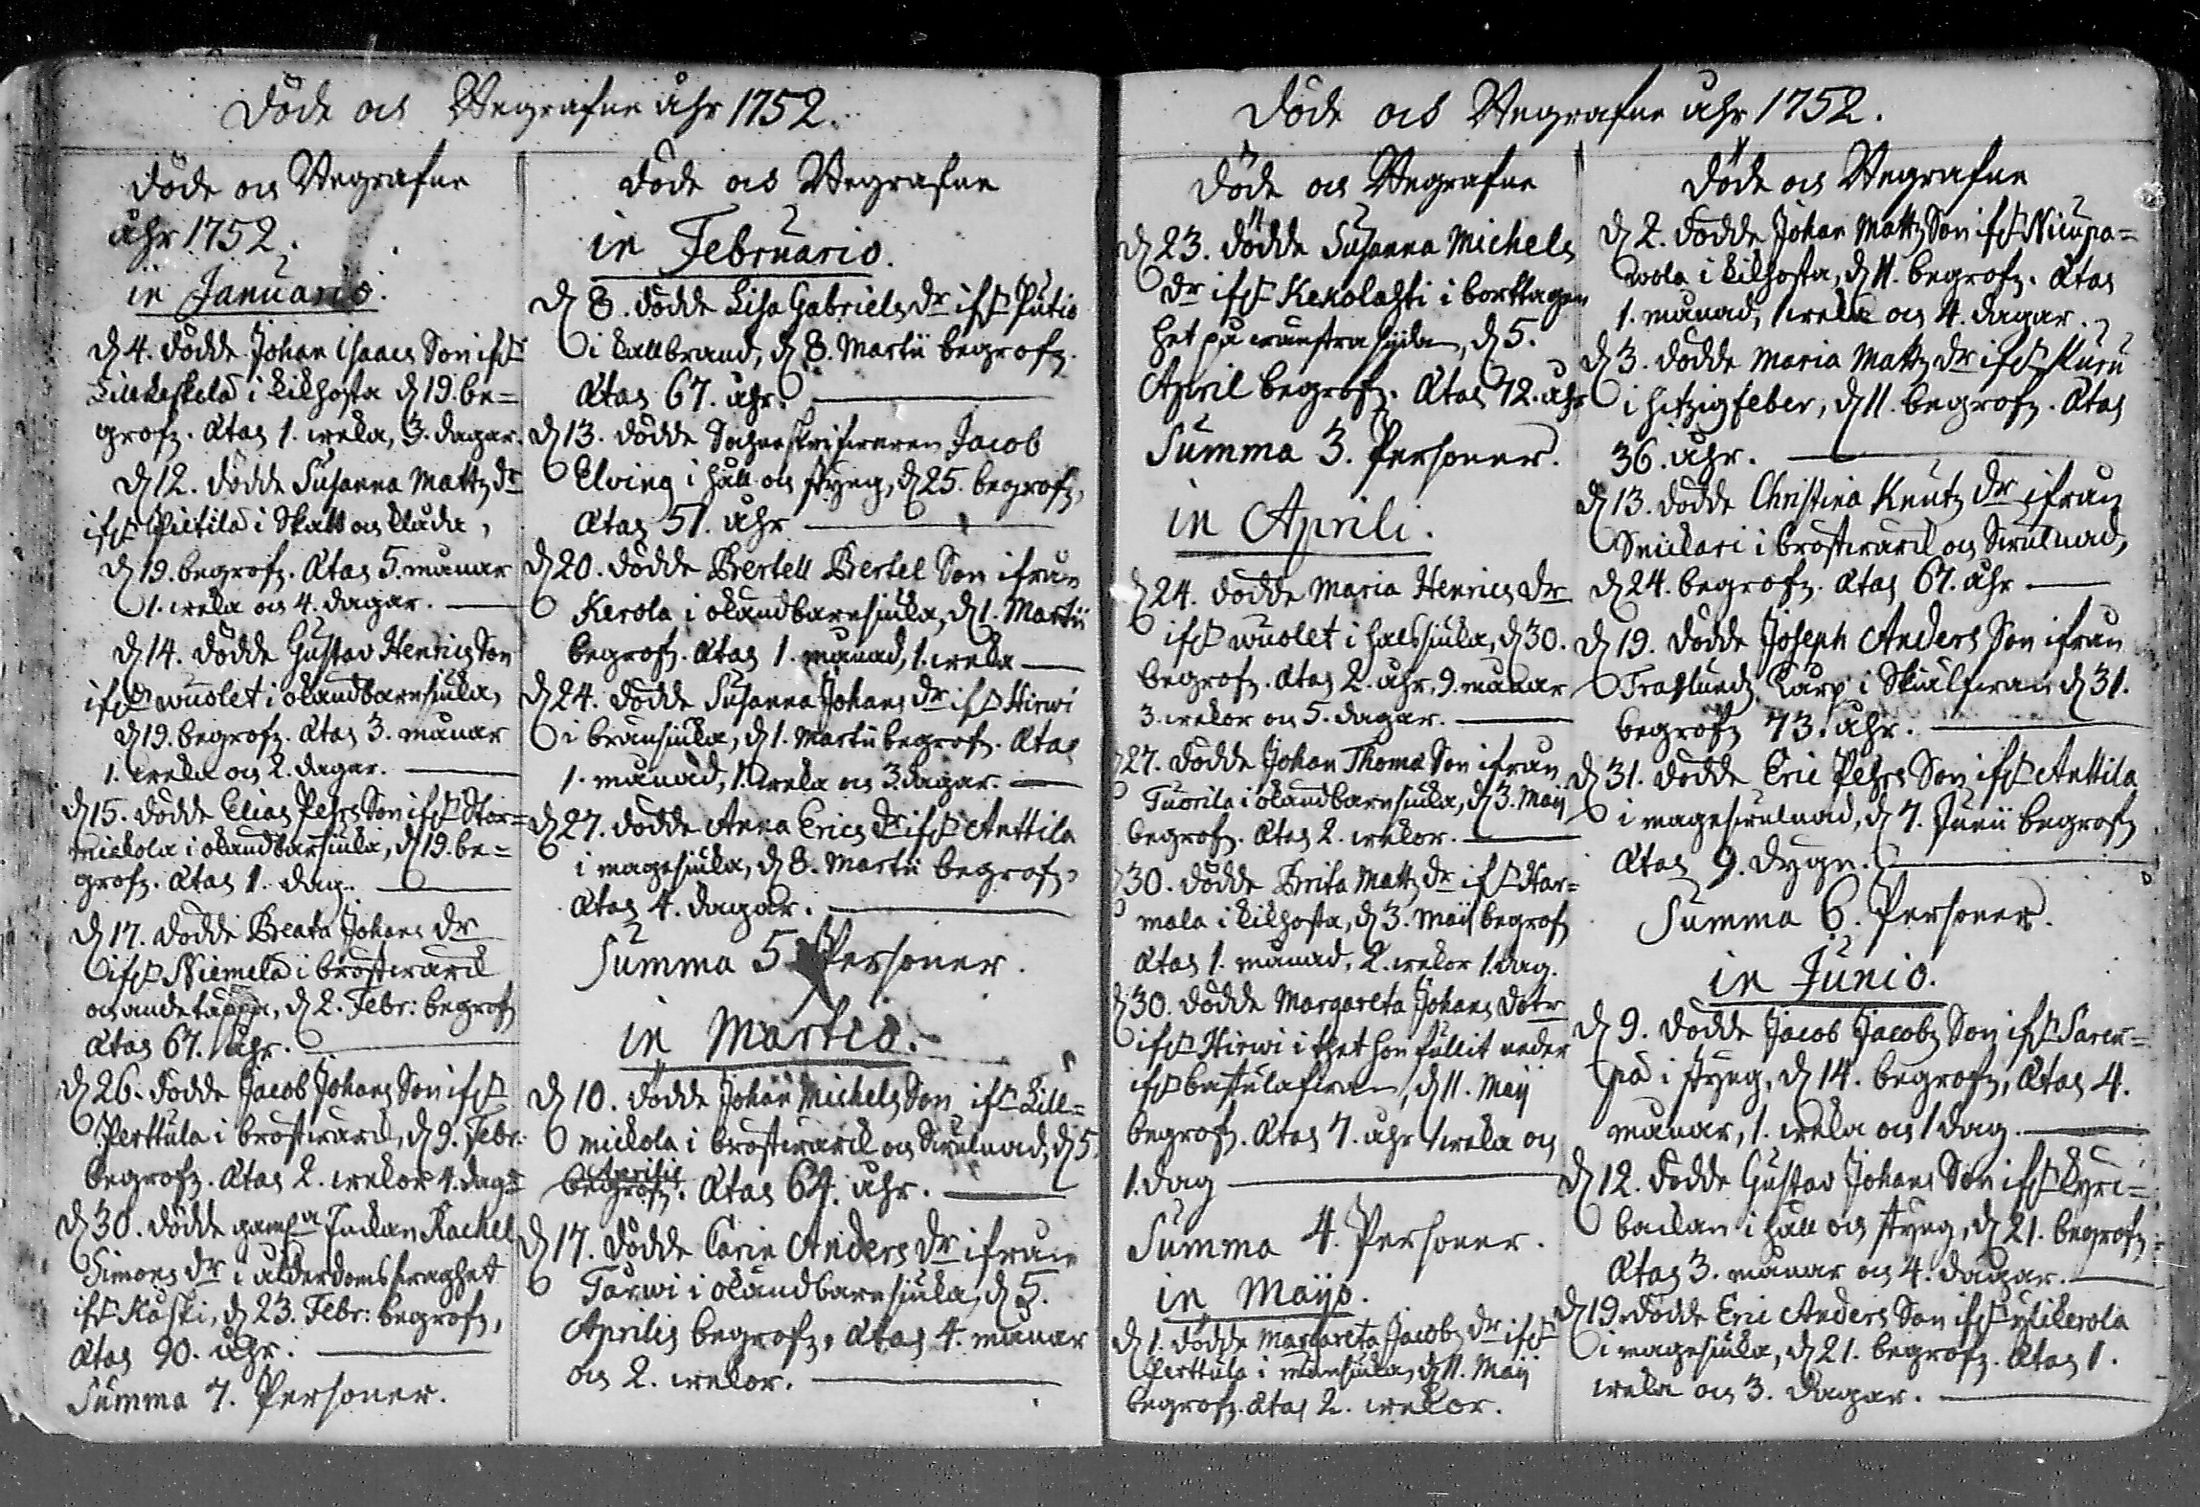 Döde och Begrafne åhr 1752.
Döde och Begrafne
åhr 1752.
in Januario.
d 4. dödde Johan Isaacs Son ifr
Lillkeskela i kikhosta d 19. be=
grofz. Ætas 1. weka, 3. dagar.
d 12. dödde Susanna Mattz dr
ifr Pietilä i Skatt och klåda,
d 19. begrofz. Ætas 5. månar
1. weka och 4. dagar.
d 14. dödde Gustav Henrics Son
ifr wuolet i okandbarnsiuka,
d 19. begrofz. Ætas 3. månar
1. weka och 2. dagar.
d 15. dödde Elias Pehrs Son ifr Stor=
mickola i okandbarsiuka, d 19. be=
grofz. Ætas 1. dag.
d 17. dödde Beata Johans dr
ifr Niemelä i bröstwärck
och andetäppa, d 2. Febr: begrofz
Ætas 67. åhr.
d 26. dödde Jacob Johans Son ifr
Perttula i bröstwärck, d 9. Febr:
begrofz. Ætas 2. wekor 4. dagr
d 30. dödde gamla Enckan Rachel
Simons dr i ålderdoms swaghet
ifr Käski, d 23. Febr: begrofz,
Ætas 90. åhr.
Summa 7. Personer.
Döde och Begrafne
in Februario.
d 8. dödde Lisa Gabriels dr ifr Putio
i kallbrand, d 8. Martii begrofz.
Ætas 67. åhr.
d 13. dödde Sochneskrifwaren Jacob
Elving i håll och styng, d 25. begrofz,
Ætas 51. åhr
d 20. dödde Bertell Bertel Son ifrån
Kerola i okandbarnsiuka, d 1. Martii
begrofz. Ætas 1. månad, 1. weka
d 24. dödde Susanna Johans dr ifr Hirwi
i bransiuka, d 1. Martii begrofz. Ætas
1. månad, 1. weka och 3 dagar.
d 27. dödde Anna Erics dr ifr Anttila
i magesiuka, d 8. Martii begrofz,
Ætas 4. dagar.
Summa 5 Personer.
in Martio.
d 10. dödde Johan Michels Son ifr Lill=
mickola i bröstwärck och Swulnad, d 5.
Aprilis
begrofz. Ætas 64. åhr.
d 17. dödde Carin Anders dr ifrån
Torwi i okandbarnsiuka, d 5.
Aprilis begrofz, Ætas 4. månar
och 2. wekor.
Döde och Begrafne åhr 1752.
Döde och Begrafne
d 23. dödde Susanna Michels
dr ifr Kekolahti i borttagen
het på wänstra sijdan, d 5.
April begrofz. Ætas 12. åhr
Summa 3. Personer.
in Aprili.
d 24. dödde Maria Henrics dr
ifr wuolet i halssiuka, d 30.
begrofz. Ætas 2. åhr, 9. månar
3. wekor och 5. dagar.
27. dödde Johan Thomæ Son ifrån
Tuorila i okandbarnsiuka, d 3. Maij
begrofz. Ætas 2. wekor.
30. dödde Brita Mattz dr ifr Har=
mala i kikhosta, d 3. Maij begrofz
Ætas 1. månad, 2. wekor 1 dag.
d 30. dödde Margareta Johans Dotr
ifr Hirwi i thet hon fallit neder
ifr, d 11. Maij
begrofz. Ætas 7. åhr 1 weka och
1. dag
Summa 4. Personer.
in Mayo.
d 1. dödde Margareta Jacobs dr ifr
Perttula i, d 11. Maij
begrofz. Ætas 2. wekor.
Döde och Begrafne
d 2. dödde Johan Mattz Son ifr Niinpa=
wola i kikhosta, d 11. begrofz. Ætas
1. månad, 1 weka och 4. dagar.
d 3. dödde Maria Mattz dr ifr Kuru
i hitzigfeber, d 11. begrofz. Ætas
36. åhr.
d 13. dödde Christina Knutz dr ifrån
Snickari i bröstwärck och Swulnad,
d 24. begrofz. Ætas 67. åhr
d 19. dödde Joseph Anders Son ifrån
Traslundz Karp i Skiälfwan d 31.
begrofz 73. åhr.
d 31. dödde Eric Pehrs Son ifr Anttila
i mageswulnad, d 7. Junii begrofz
Ætas 9. dygn.
Summa 6. Personer.
in Junio.
d 9. dödde Jacob Jacobs Son ifr Saren=
pä i styng, d 14. begrofz, Ætas 4.
månar, 1. weka och 1 dag.
d 12. dödde Gustav Johans Son ifr Kyrc=
backan i håll och styng, d 21. begrofz=
Ætas 3. månar och 4. dagar.
d 19. dödde Eric Anders Son ifr ylikerola
i magesiuka, d 21. begrofz. Ætas 1.
weka och 3. dagar.